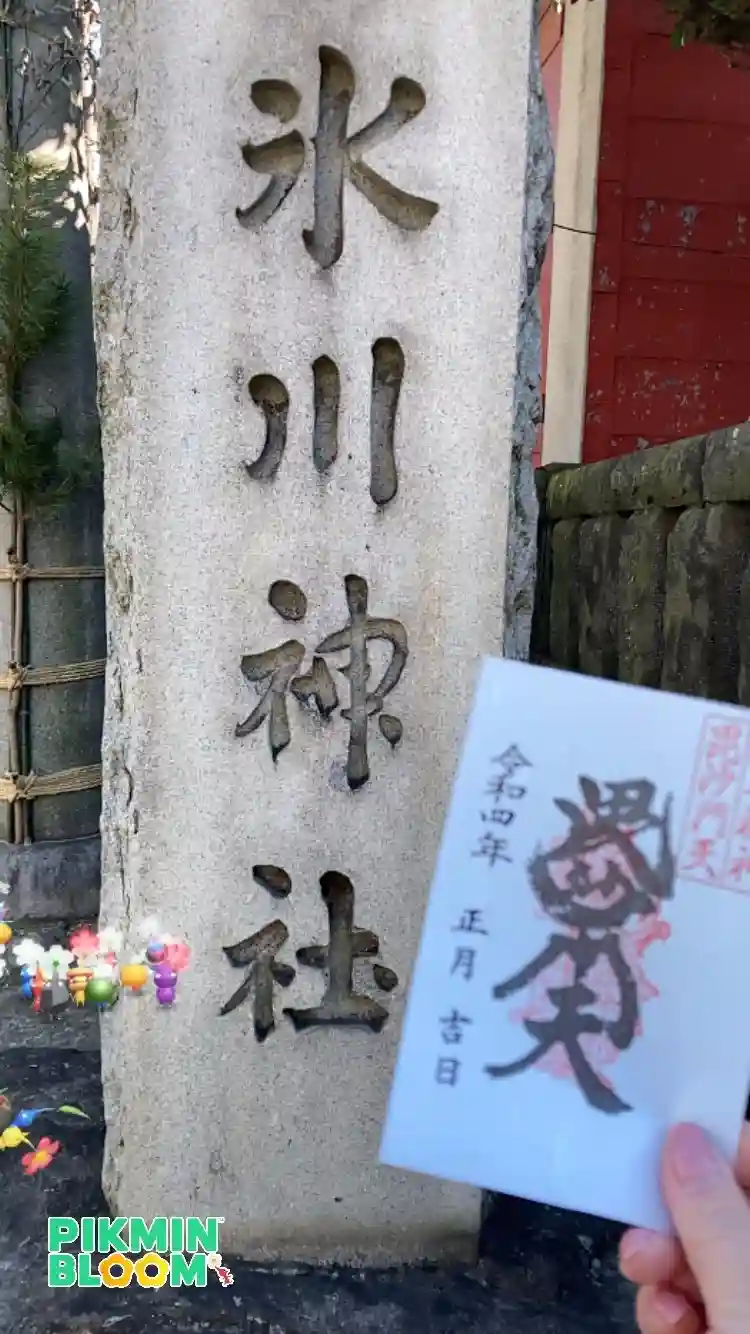 氷川神社
毘沙門天
令和四年
正月吉日
毘沙門天
PIKMIN
BLOOM